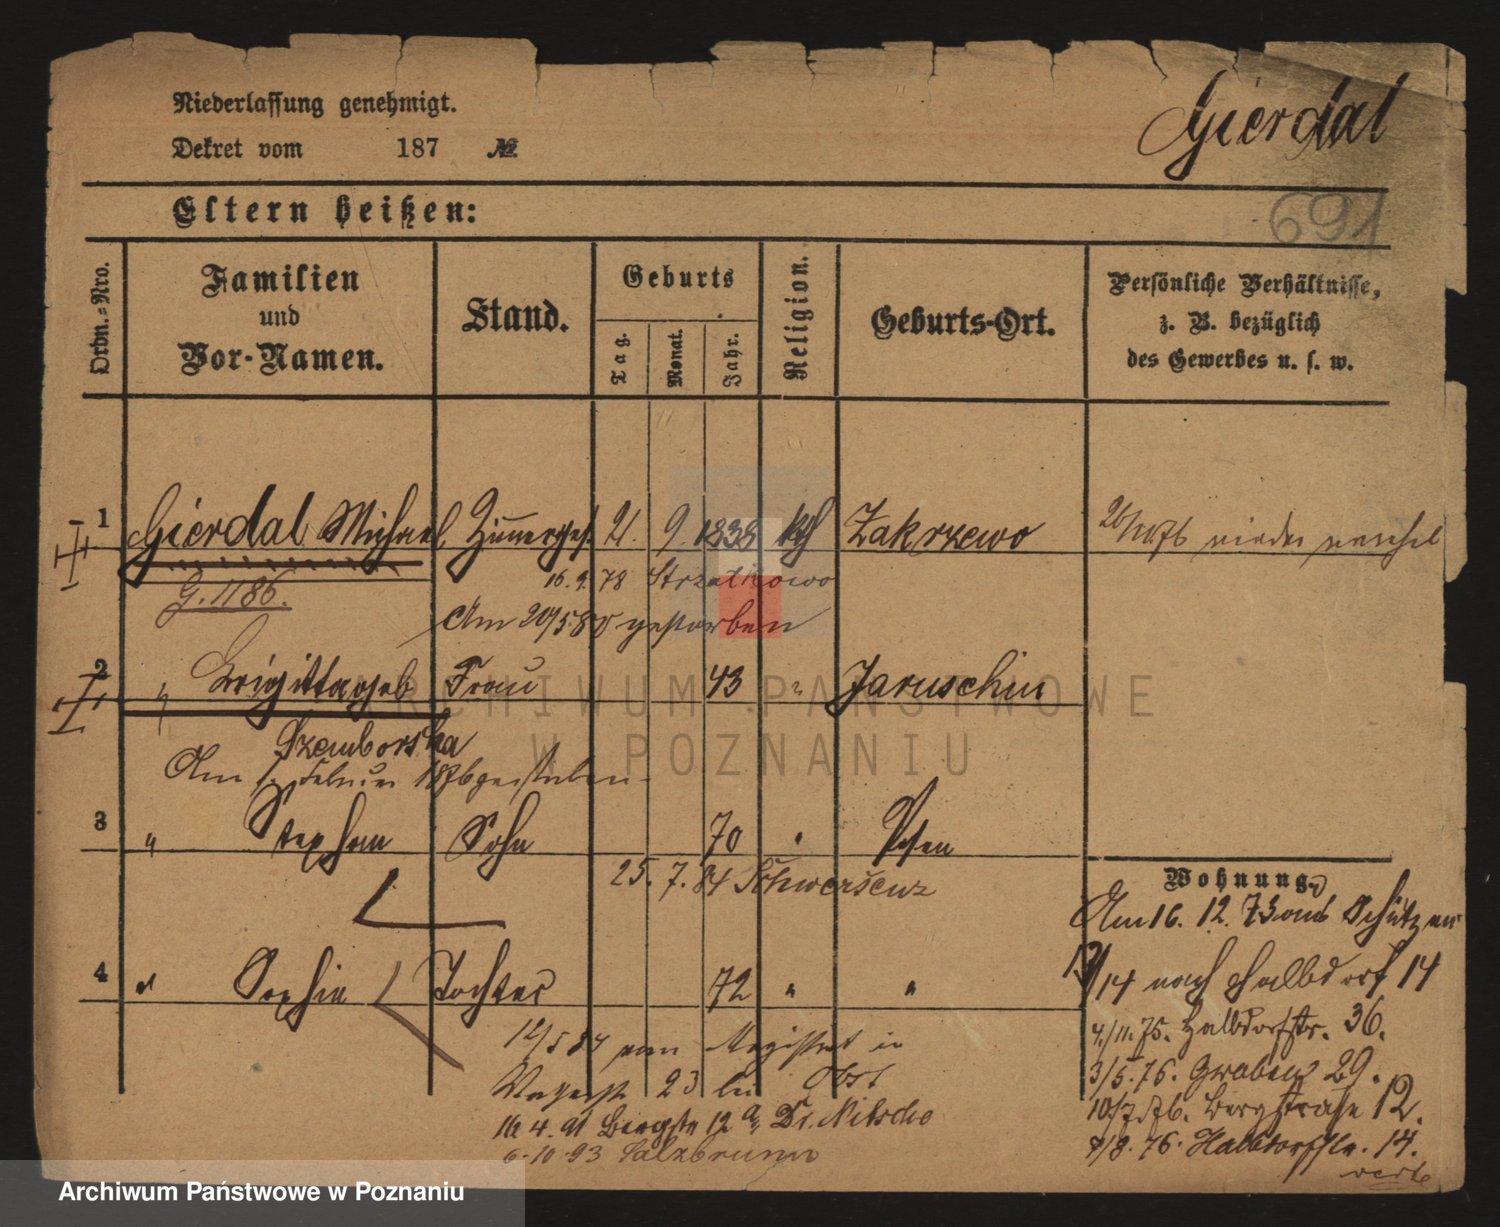 Niederlassung genehmigt.
Gierdal
Dekret vom 187 №
Eltern heißen:
691
Ordn.-Nro.
Familien und Vor-Namen.
Stand.
Geburts
Tag.
Monat.
Jahr.
Religion.
Geburts-Ort.
Persönliche Verhältnisse,
z. B. bezüglich
des Gewerbes u. s. w.
1 Gierdal Michael Zimmerges. 21. 9. 1838 kth Zakrzewo
16.9.78 Strzalkowo
G. 1186.
Am 20/5 80 gestorben
2 " Brigitta geb Frau 43 " Jaruschin
Szemborska
Am Februar 1876 gestorben
3 " Stephan Sohn 70 " Posen
25. 7. 84 Schwersenz
Wohnung.
Am 16. 12. 73 Schützen
4 " Sophie Tochter 72 " "
14 nach Halbdorf 14
12/5 84 vom Magistrat in
4/11. 75. Halbdorfstr. 36.
23 bei Obst
3/5. 76. Graben 29.
16 4. 91 Bergstr 12 a, Dr. Nitsche
10/7 76. Bergstraße 12.
6.10.93 Salzbrunn
4/8. 76. Halbdorfstr. 14.
verte
ARCHIWUM PAŃSTWOWE
W POZNANIU
Archiwum Państwowe w Poznaniu